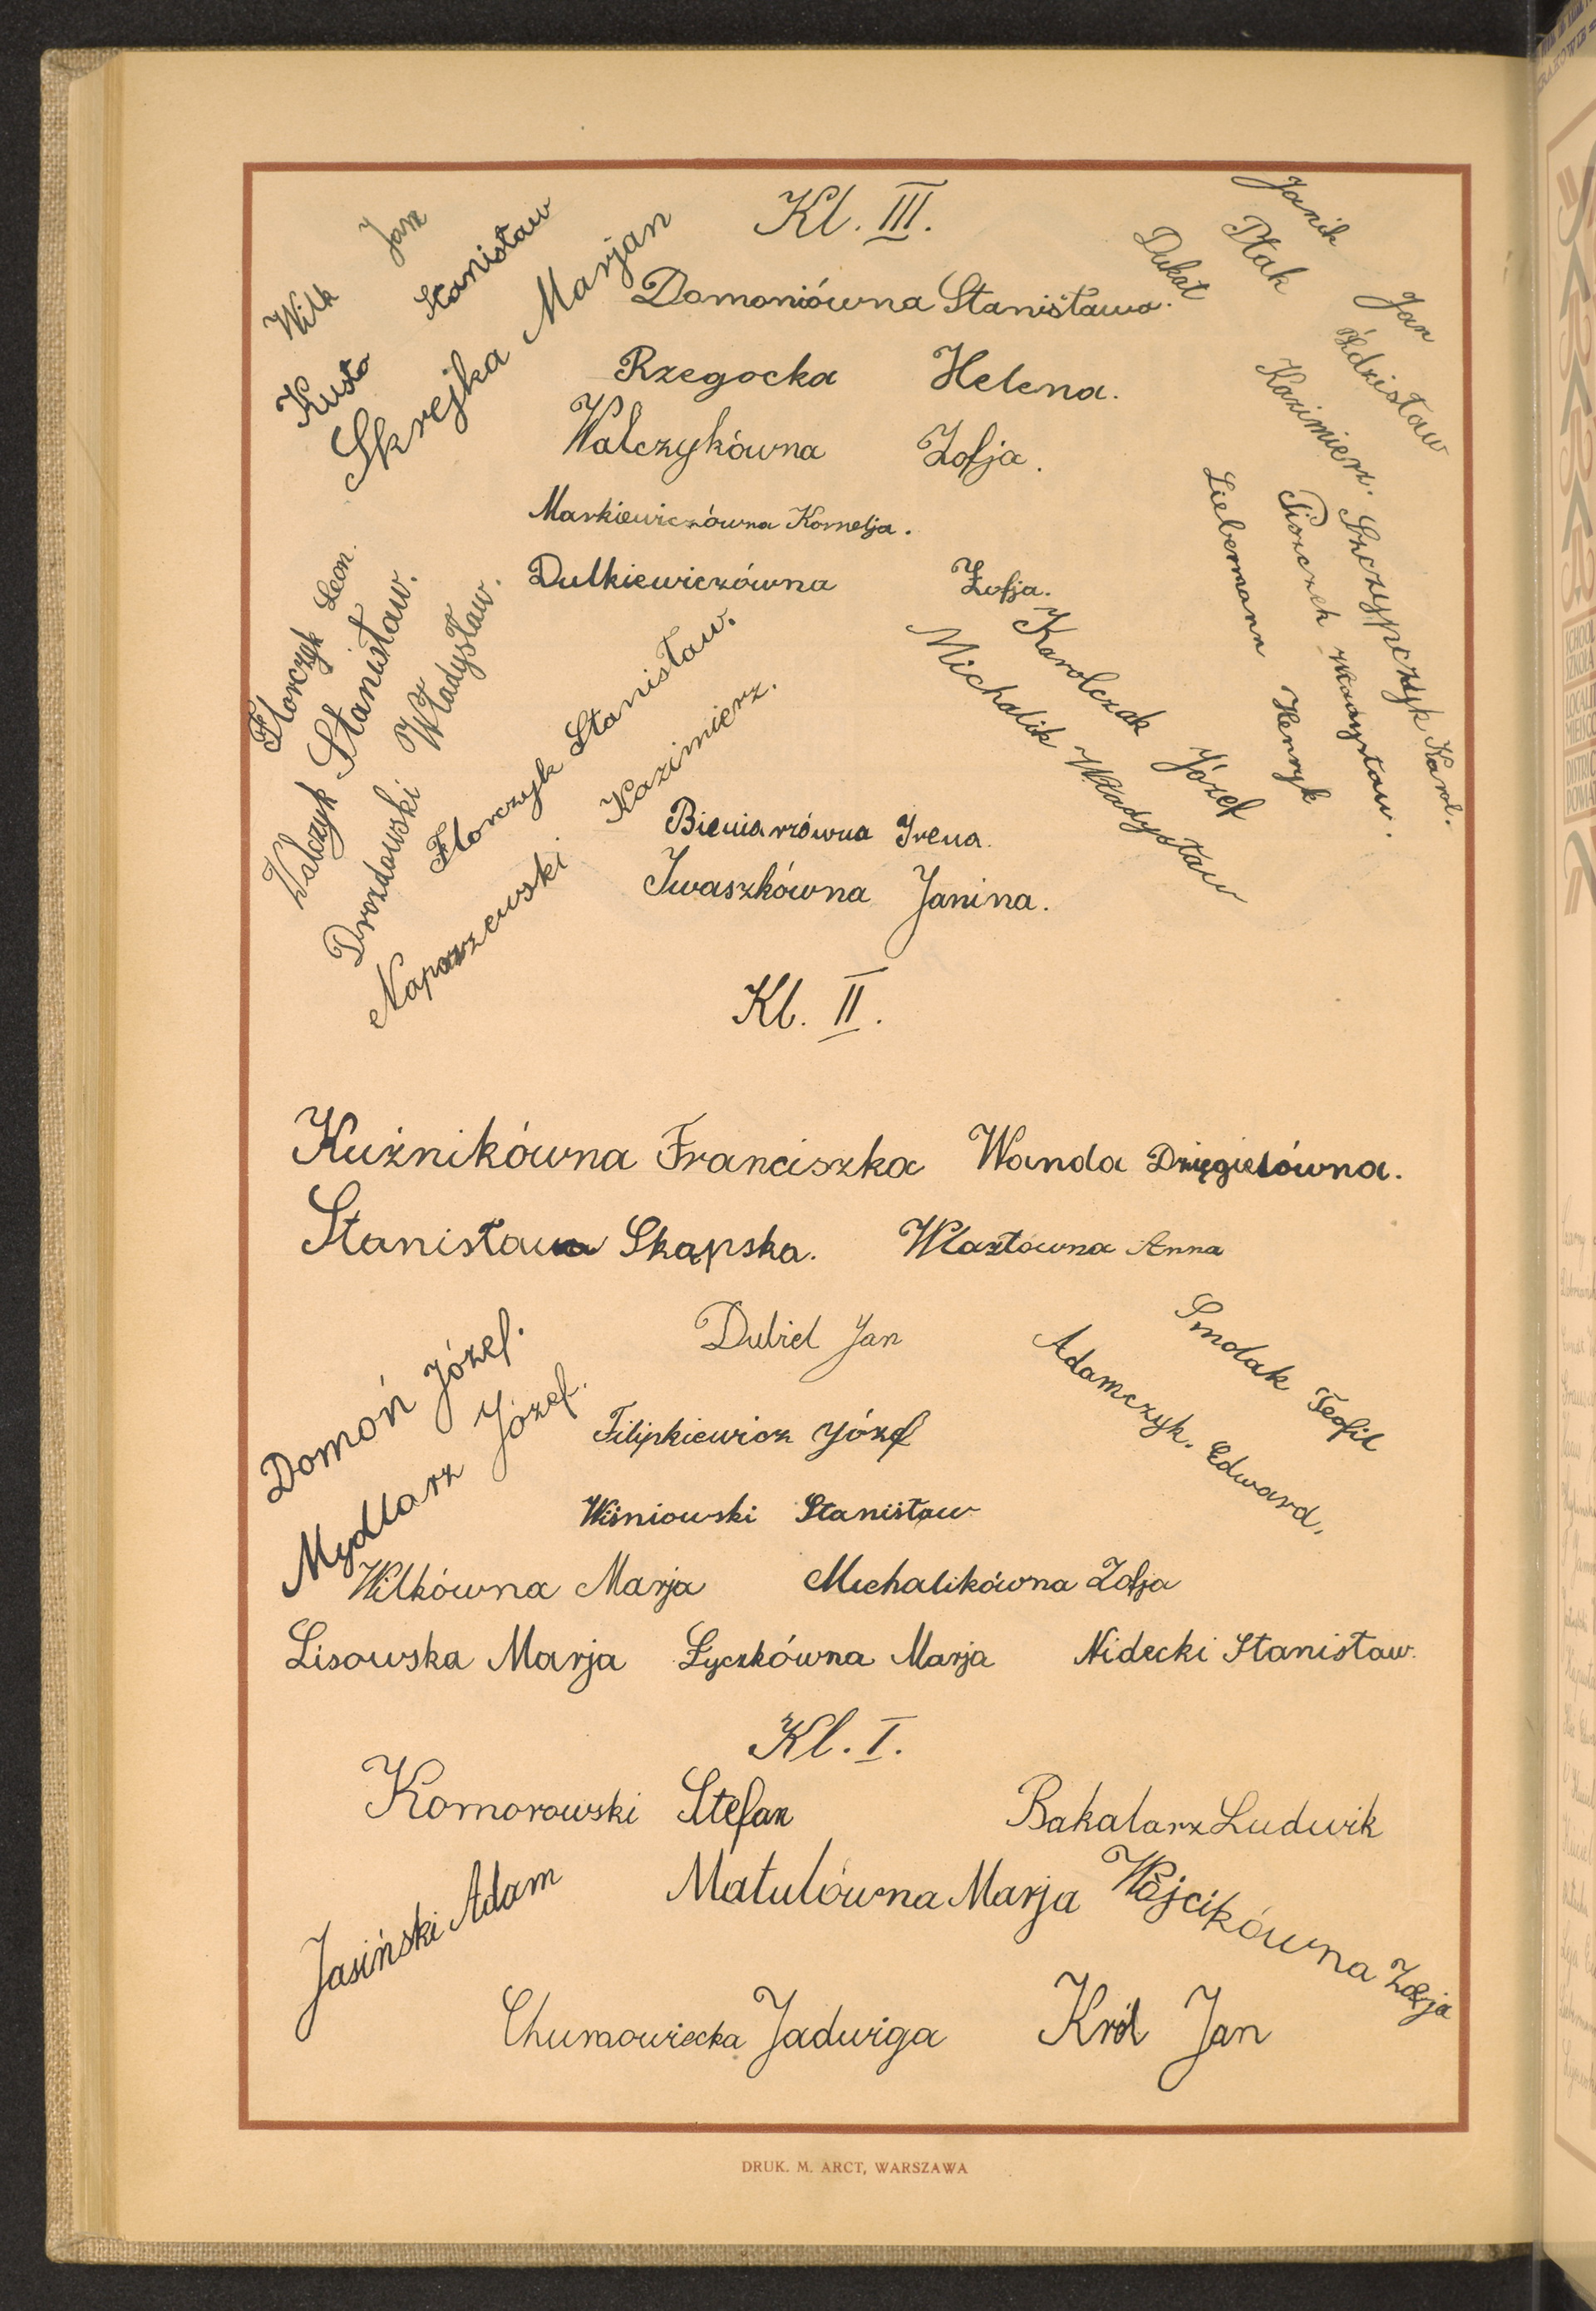 Kl. III.
Wilk Jan
Kusto Stanisław
Skrejka Marjan
Domoniówna Stanisława.
Rzegocka Helena.
Walczykówna Zofja.
Markiewiczówna Kornelja.
Dulkiewiczówna Zofja.
Janik Jan
Ptak Zdzisław
Dukat Kazimierz.
Szczypczyk Karol.
Pioczek Władysław.
Liebermann Henryk
Karolczak Józef
Michalik Władysław
Florczyk Leon.
Walczyk Stanisław.
Drozdowski Władysław.
Florczyk Stanisław.
Naparzewski Kazimierz.
Bieniarzówna Irena.
Iwaszkówna Janina.
Kl. II.
Kuźnikówna Franciszka Wanda Dzięgielówna.
Stanisława Skąpska. Wlaztówna Anna
Domoń Józef.
Mydlarz Józef.
Dubiel Jan
Filipkiewicz Józef
Wiśniowski Stanisław
Smolak Teofil
Adamczyk. Edward.
Wilkówna Marja Michalikówna Zofja
Lisowska Marja Łyczkówna Marja Nidecki Stanisław.
Kl. I.
Komorowski Stefan Bakalarz Ludwik
Jasiński Adam Matulówna Marja Wójcikówna Zofja
Jadwiga Król Jan
DRUK. M. ARCT, WARSZAWA